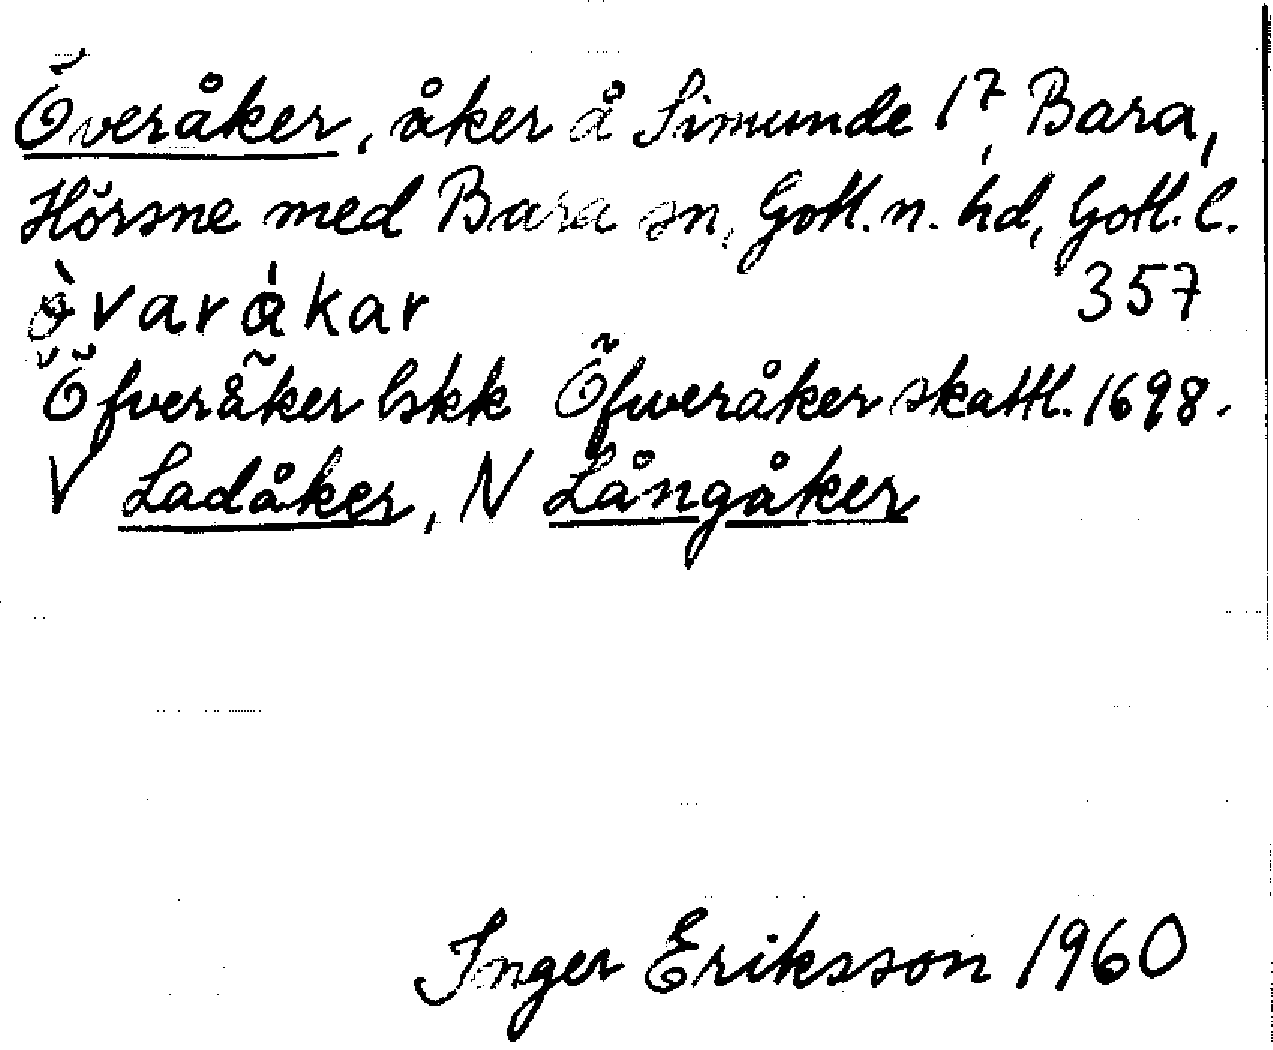 Överåker, åker å Simunde 1⁷, Bara,
Hörsne med Bara sn, Gotl. n. hd, Gotl. l.
ò̵varàkar 357
Öfveråker lskk Öfweråker skattl. 1698.
V Ladåker, N Långåker
Inger Eriksson 1960